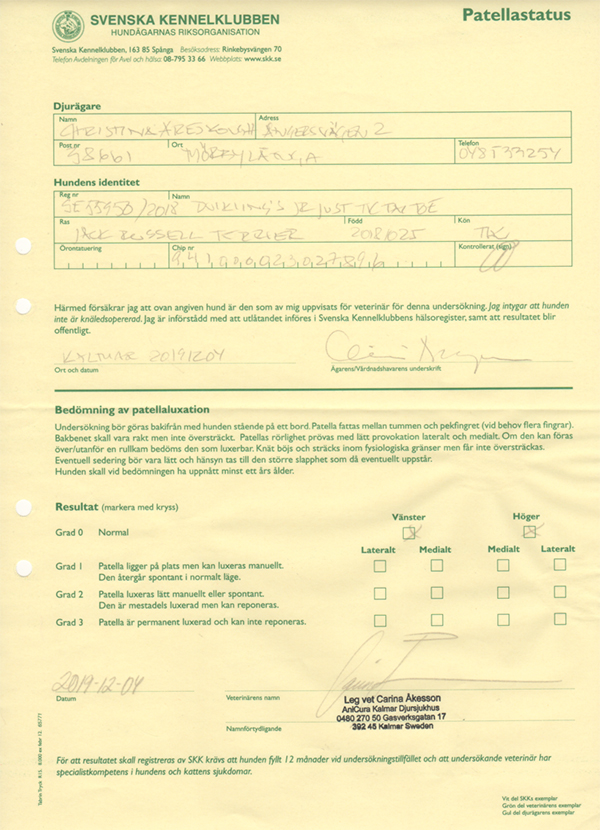 SVENSKA KENNELKLUBBEN
HUNDÄGARNAS RIKSORGANISATION
Patellastatus
Svenska Kennelklubben, 163 85 Spånga Besöksadress: Rinkebysvängen 70
Telefon Avdelningen för Avel och hälsa 08-795 33 66 Webbplats: www.skk.se
Djurägare
Namn Adress
CHRISTINA 2
Post nr Ort Telefon
38661 MÖRBYLÅNGA 048533254
Hundens identitet
Reg nr Namn
SE55950/2018 JR JUST TIC TAC TOE
Ras Född Kön
JACK RUSSELL TERRIER 20181025 TIK
Örontatuering Chip nr Kontrollerat (sign)
941000023027896
Härmed försäkrar jag att ovan angiven hund är den som av mig uppvisats för veterinär för denna undersökning. Jag intygar att hunden
inte är knäledsopererad. Jag är införstådd med att utlåtandet införes i Svenska Kennelklubbens hälsoregister, samt att resultatet blir
offentligt.
KALMAR 20191204
Ort och datum Ägarens/Vårdnadshavarens underskrift
Bedömning av patellaluxation
Undersökning bör göras bakifrån med hunden stående på ett bord. Patella fattas mellan tummen och pekfingret (vid behov flera fingrar).
Bakbenet skall vara rakt men inte översträckt. Patellas rörlighet prövas med lätt provokation lateralt och medialt. Om den kan föras
över/utanför en rullkam bedöms den som luxerbar. Knät böjs och sträcks inom fysiologiska gränser men får inte översträckas.
Eventuell sedering bör vara lätt och hänsyn tas till den större slapphet som då eventuellt uppstår.
Hunden skall vid bedömningen ha uppnått minst ett års ålder.
Resultat (markera med kryss)
Vänster Höger
Grad 0 Normal
Lateralt Medialt Medialt Lateralt
Grad 1 Patella ligger på plats men kan luxeras manuellt.
Den återgår spontant i normalt läge.
Grad 2 Patella luxeras lätt manuellt eller spontant.
Den är mestadels luxerad men kan reponeras.
Grad 3 Patella är permanent luxerad och kan inte reponeras.
2019-12-04
Datum Veterinärens namn
Leg vet Carina Åkesson
AniCura Kalmar Djursjukhus
0480 270 50 Gasverksgatan 17
392 45 Kalmar Sweden
Namnförtydligande
För att resultatet skall registreras av SKK krävs att hunden fyllt 12 månader vid undersökningstillfället och att undersökande veterinär har
specialistkompetens i hundens och kattens sjukdomar.
Vit del SKKs exemplar
Grön del veterinärens exemplar
Gul del djurägarens exemplar